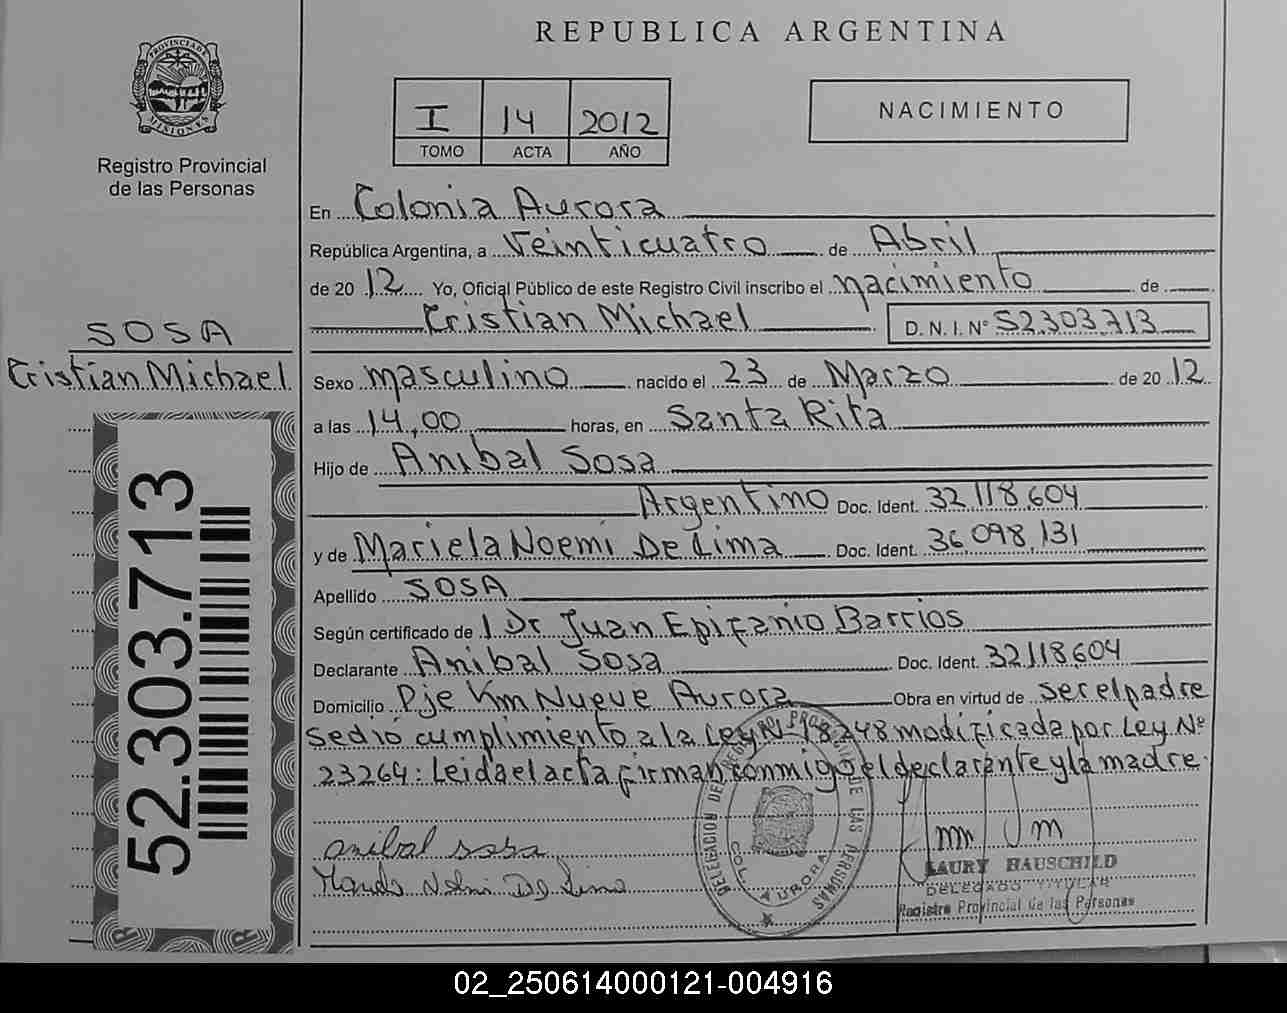 REPUBLICA ARGENTINA
PROVINCIA DE MISIONES
Registro Provincial
de las Personas
I 14 2012
TOMO ACTA AÑO
NACIMIENTO
En Colonia Aurora
República Argentina, a Veinticuatro de Abril
de 2012 Yo, Oficial Público de este Registro Civil inscribo el nacimiento de
Cristian Michael D. N. I. Nº 52.303.713
SOSA
Cristian Michael
Sexo masculino nacido el 23 de Marzo de 2012
a las 14,00 horas, en Santa Rita
Hijo de Anibal Sosa
Argentino Doc. Ident. 32.118.604
y de Mariela Noemi De Lima Doc. Ident. 36.098.131
Apellido SOSA
Según certificado de Dr Juan Epifanio Barrios
Declarante Anibal Sosa Doc. Ident. 32.118.604
Domicilio Pje Km Nueve Aurora Obra en virtud de ser el padre
se dió cumplimiento a la Ley Nº 18248 modificada por Ley Nº
23264: Leida el acta firman conmigo el declarante y la madre.
52.303.713
anibal sosa
De Lima
DELEGACION DEL REGISTRO PROVINCIAL DE LAS PERSONAS
COL. AURORA
LAURY HAUSCHILD
DELEGADO TITULAR
Registro Provincial de las Personas
02_250614000121-004916